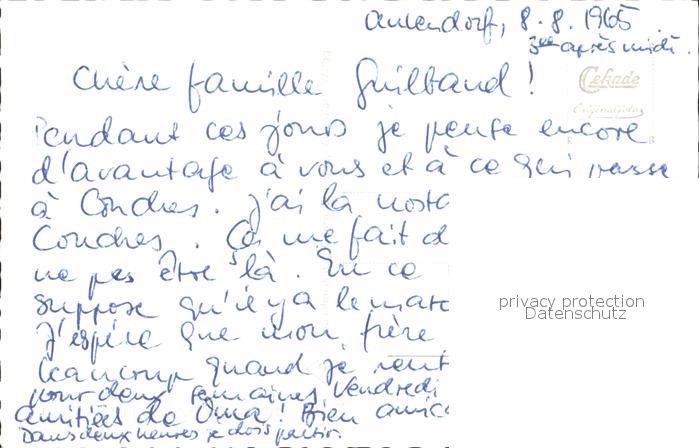 Aulendorf, 8.8.1965
3ème après midi.
Chère famille Guilbaud!
Cekade
Pendant ces jours je pense encore
d'avantage à vous et à ce qui passe
à Condres. J'ai la nosta
Condres. Ça me fait d
ne pas être là. En ce
suppose qu'il y a le matc
J'espère que mon frère
beaucoup quand je rent
pour deux semaines. Vendredi
amitiées de Oma! Bien amic
Dans deux heures je dois partir.
privacy protection
Datenschutz